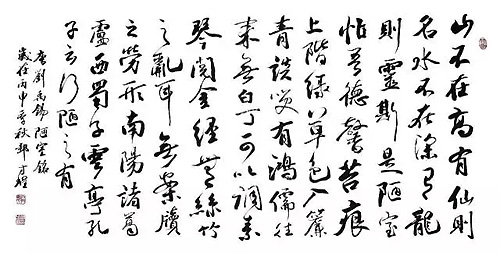 山不在高有仙則
名水不在深有龍
則靈斯是陋室
惟吾德馨苔痕
上階綠草色入簾
青談笑有鴻儒往
來無白丁可以調素
琴閱金經無絲竹
之亂耳無案牘
之勞形南陽諸葛
廬西蜀子雲亭孔
子云何陋之有
唐劉禹錫陋室銘
歲在丙申季秋